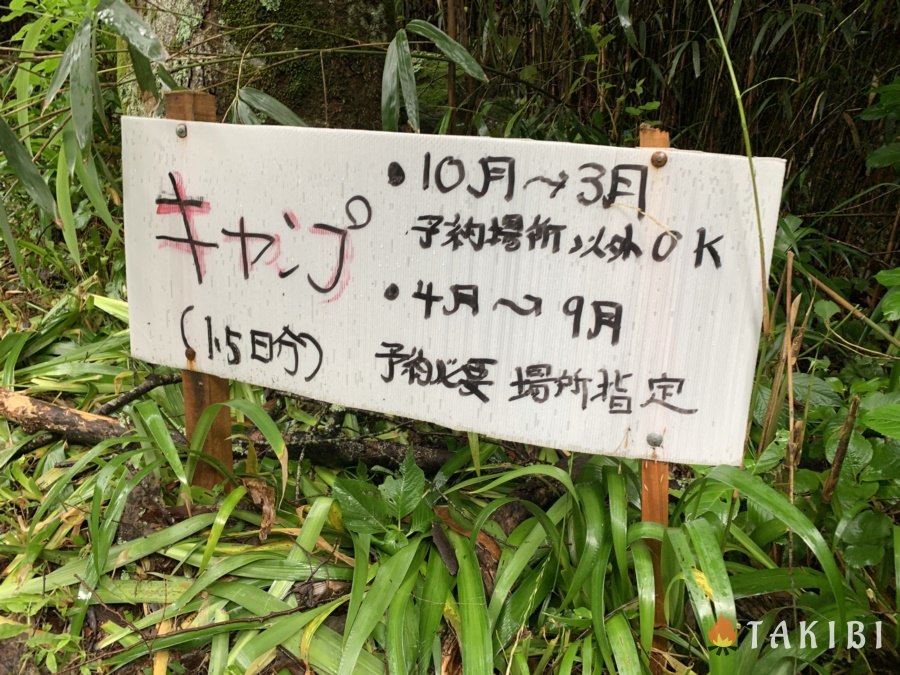 キャンプ
(1.5日分)
●10月～3月
予約場所以外OK
●4月～9月
予約必要 場所指定
TAKIBI